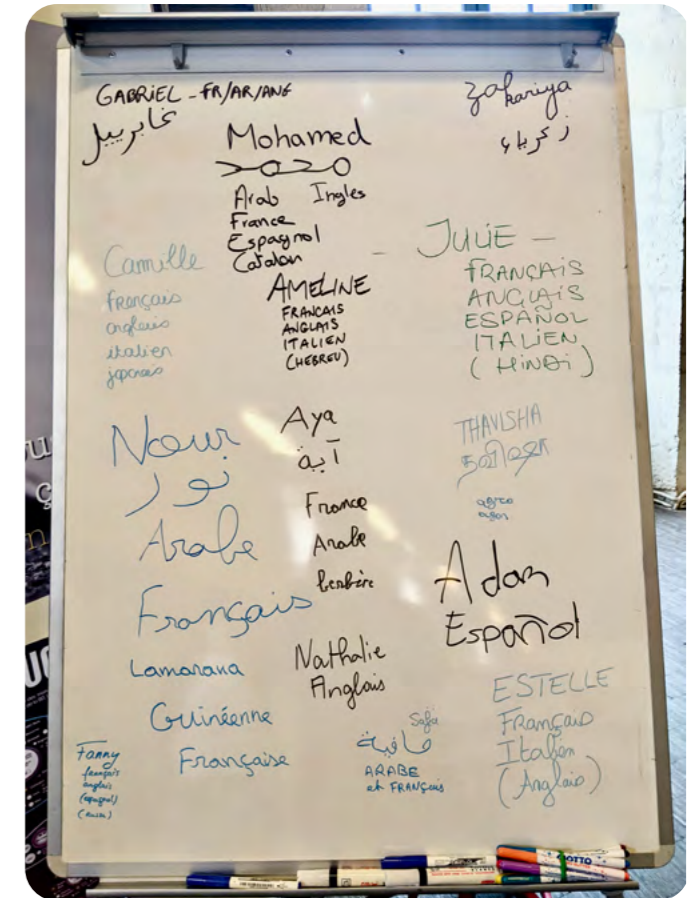 GABRIEL - FR/AR/ANG
غابرييل
zakariya
زكرياء
Mohamed
محمد
Arab Ingles
France
Espagnol
Catalan
Camille
français
anglais
italien
japonais
AMELINE
FRANCAIS
ANGLAIS
ITALIEN
(HEBREU)
JULIE -
FRANÇAIS
ANGLAIS
ESPAÑOL
ITALIEN
(HINDI)
Nour
نور
Arabe
Français
Aya
آية
France
Arabe
berbère
THAVISHA
Adam
Español
Lamarana
Guinéenne
Française
Nathalie
Anglais
Fanny
français
anglais
(espagnol)
Safa
صافية
ARABE
et FRANÇAIS
ESTELLE
Français
Italien
(Anglais)
GIOTTO